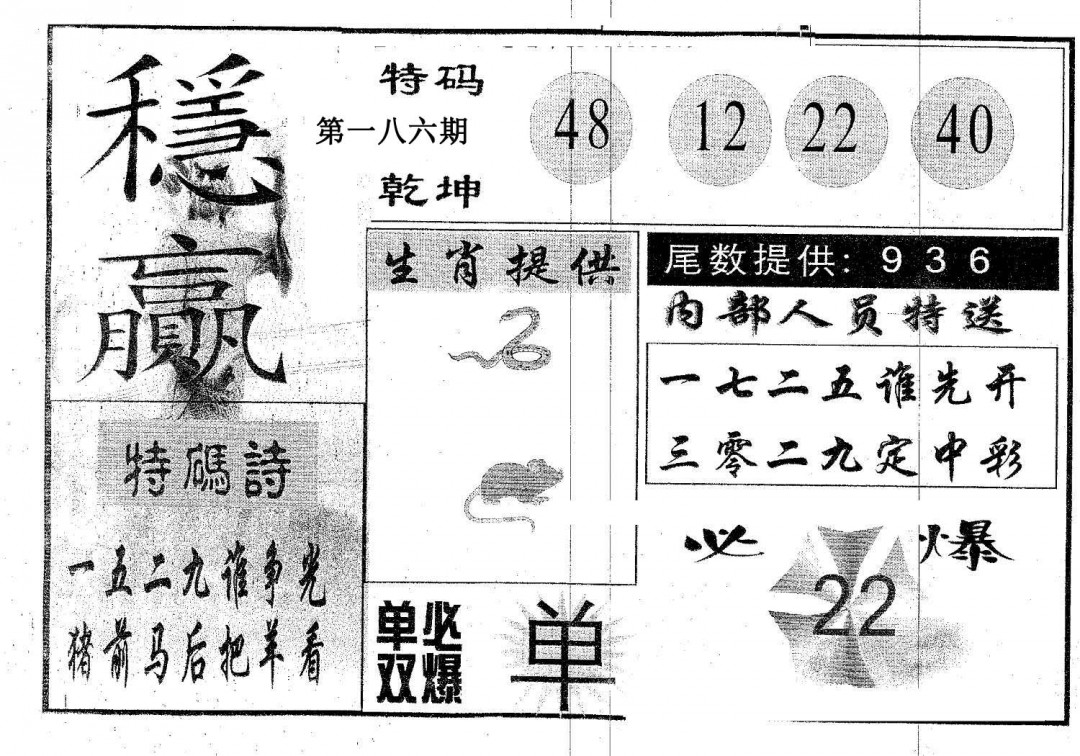 穩
贏
特码
第一八六期
乾坤
48 12 22 40
生肖提供
尾数提供: 9 3 6
内部人员特送
一七二五谁先开
三零二九定中彩
特碼詩
一五二九谁争光
猪前马后把羊看
单双必爆
单
必 22 爆